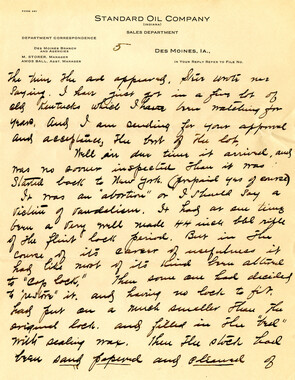 STANDARD OIL COMPANY
(INDIANA)
SALES DEPARTMENT
DEPARTMENT CORRESPONDENCE
DES MOINES BRANCH
AND AGENCIES
M. STONER, MANAGER
AMOS BALL, ASST. MANAGER
5
DES MOINES, IA.,
IN YOUR REPLY REFER TO FILE NO.
the time the ad appeared, wrote me
saying. I have just got in a fine lot of
old Kentucky which I have been watching for
years. And I am sending for your approval
and acceptance, the best of the lot,
Well in due time it arrived, and
was no sooner inspected than it was
started back to New York (prepaid yes of course)
It was an "abortion" or I should say a
victim of vandalism. It had at one time
been a very well made 44 inch bbl rifle
of the flint lock period. But in the
course of its career of usefulness it
had like most of its kind been altered
to "cap lock," Then some one had decided
to "restore" it. and having no lock to fit,
had put on a much smaller than the
original lock. and filled in the "bed"
with sealing wax. Then the stock had
been sand papered and cleaned of